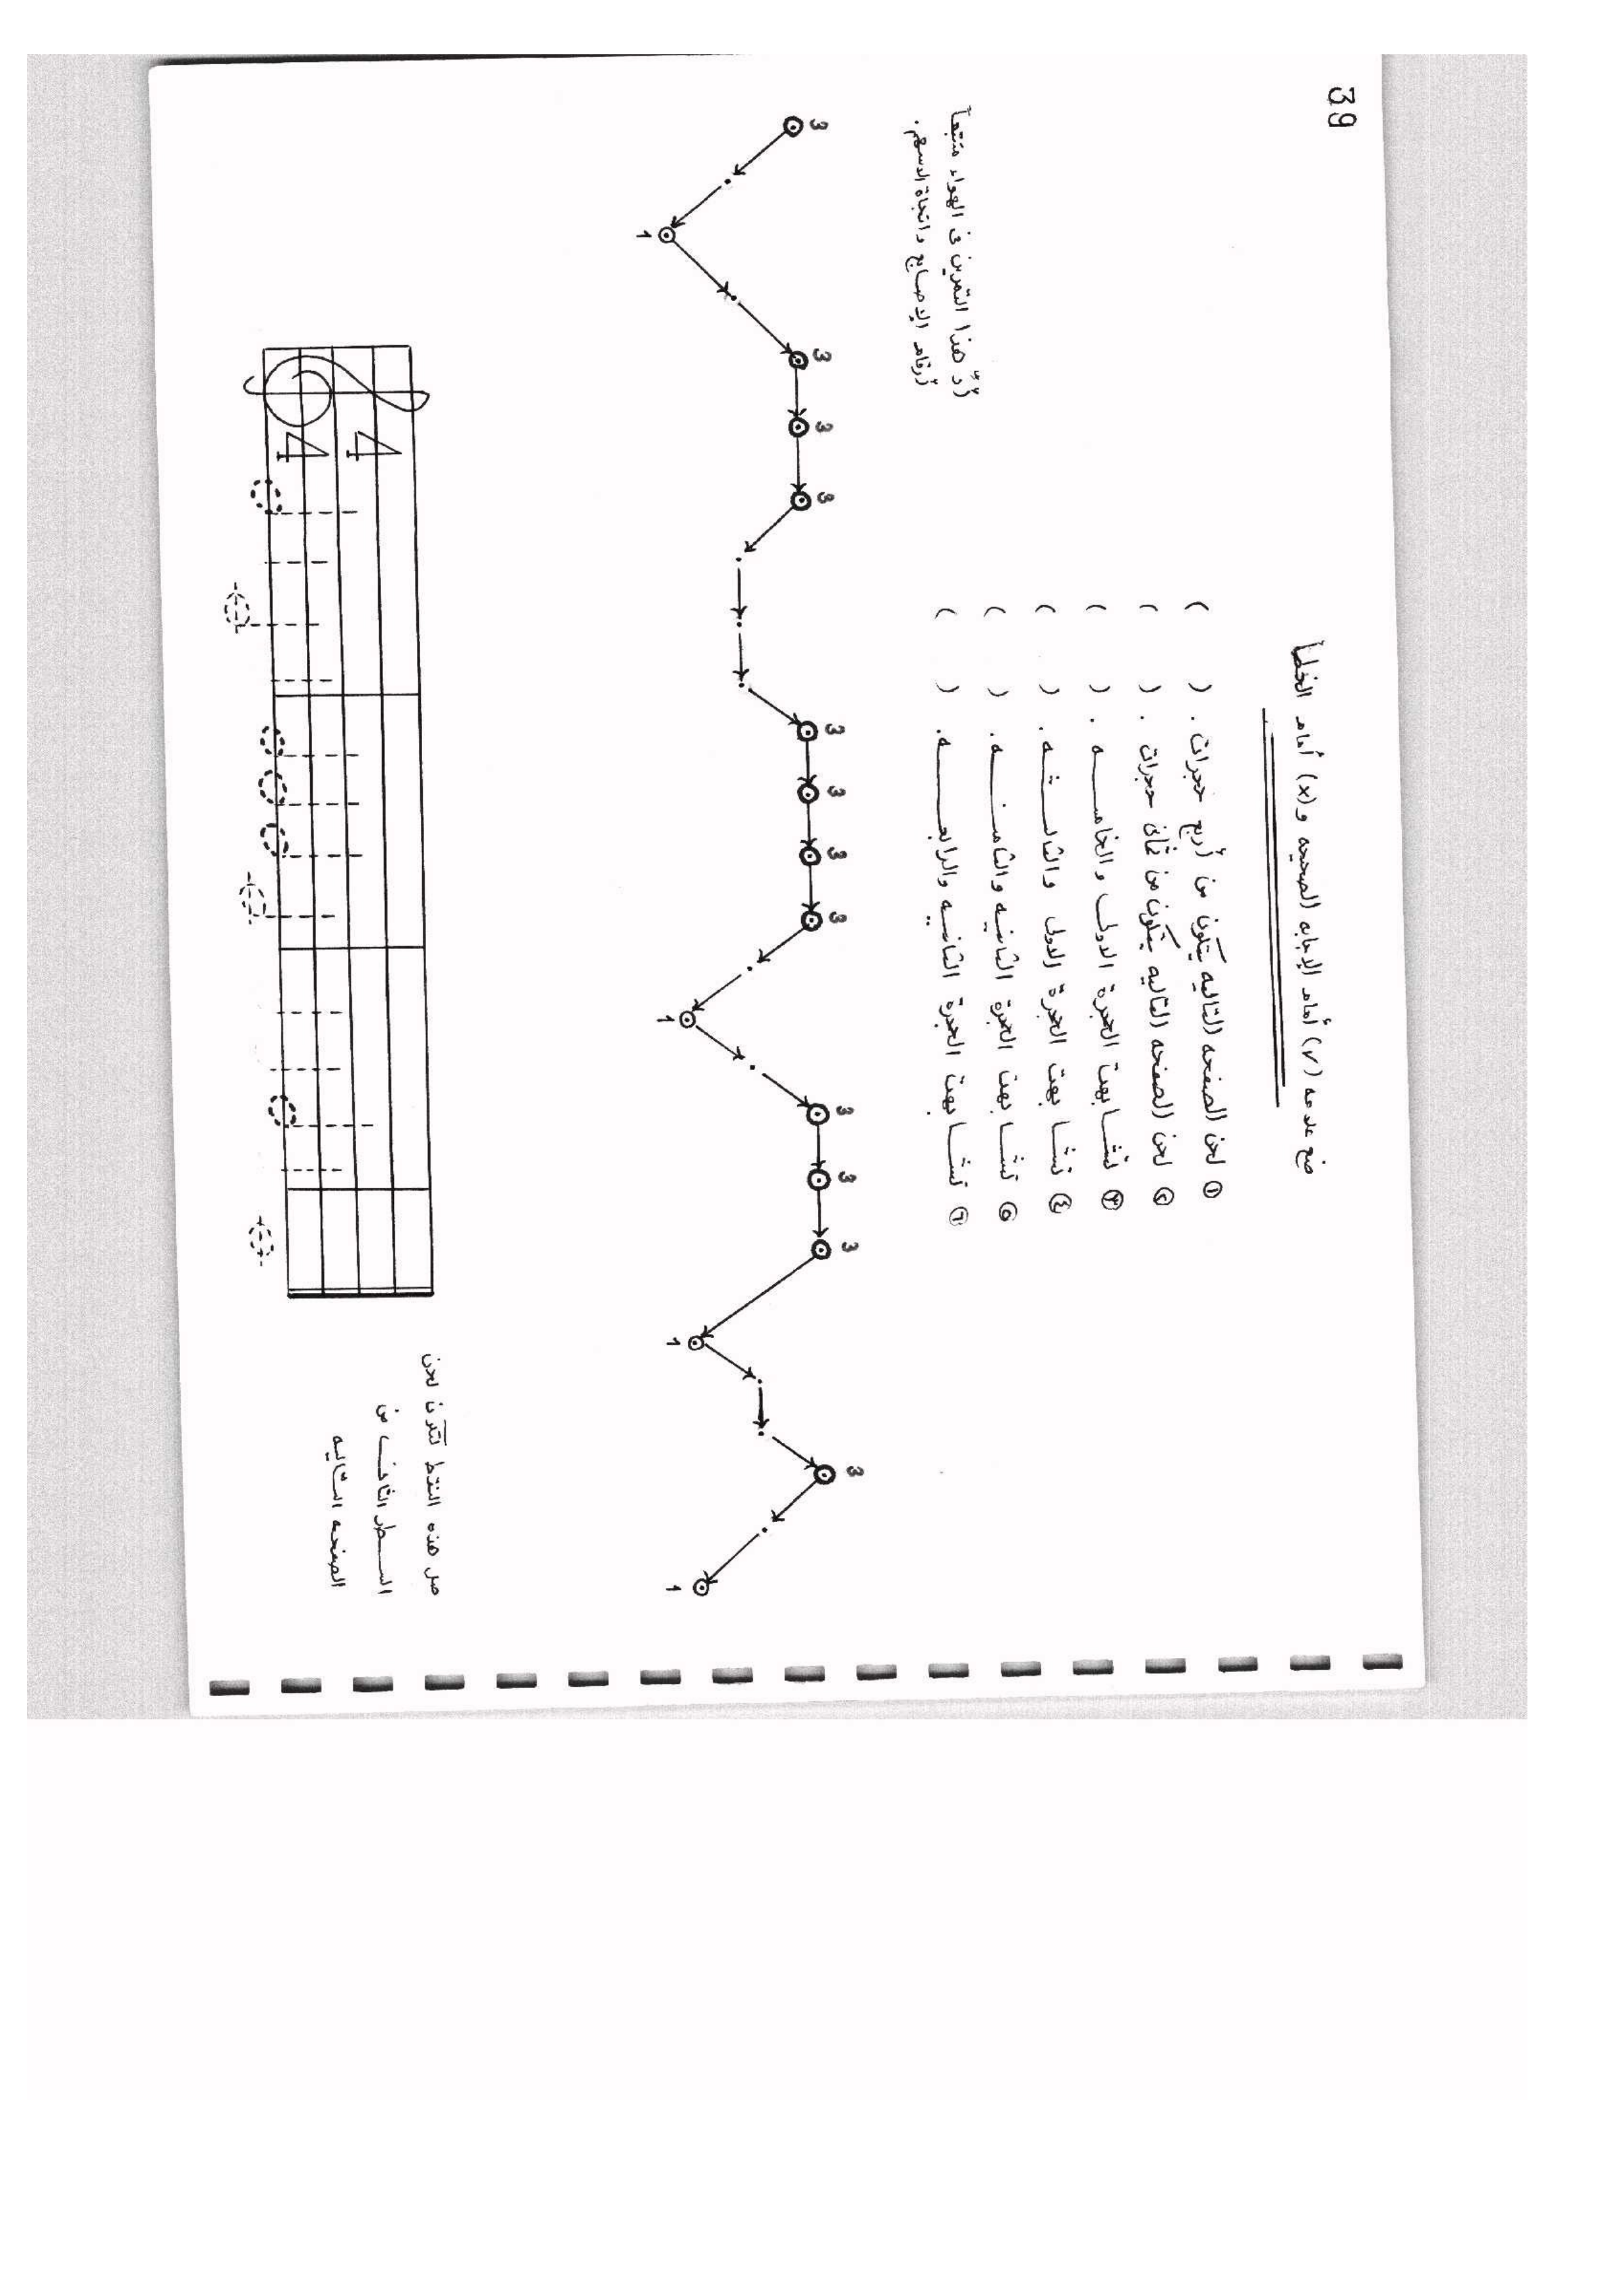 39
ضع علامه (✓) أمام الإجابه الصحيحه و (×) أمام الخطأ
① لحن الصفحه التاليه يتكون من أربع حجرات . ( )
② لحن الصفحه التاليه يتكون من ثمانى حجرات . ( )
③ تشابهت الحجرة الأولى والخامسه . ( )
④ تشابهت الحجرة الأولى والثالثه . ( )
⑤ تشابهت الحجرة الثانيه والثامنه . ( )
⑥ تشابهت الحجرة الثانيه والرابعه . ( )
أدِّ هذا التمرين فى الهواء متتبعاً
أرقام الأصابع واتجاة الأسهم .
3 1 3 3 3 3 3 3 3 1 3 3 3 1 3 1
صل هذه النقط لتكون لحن
السطر الثانى من
الصفحه التاليه
4
4